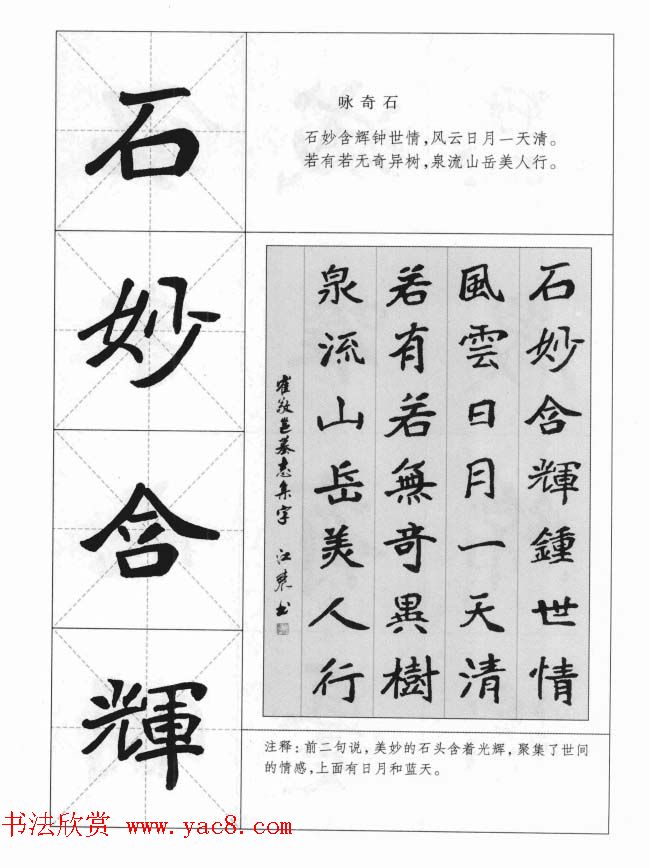 石
妙
含
輝
咏奇石
石妙含辉钟世情，风云日月一天清。
若有若无奇异树，泉流山岳美人行。
石妙含輝鍾世情
風雲日月一天清
若有若無奇異樹
泉流山岳美人行
崔敬邕墓志集字 江
书
注释：前二句说，美妙的石头含着光辉，聚集了世间
的情感，上面有日月和蓝天。
书法欣赏 www.yac8.com